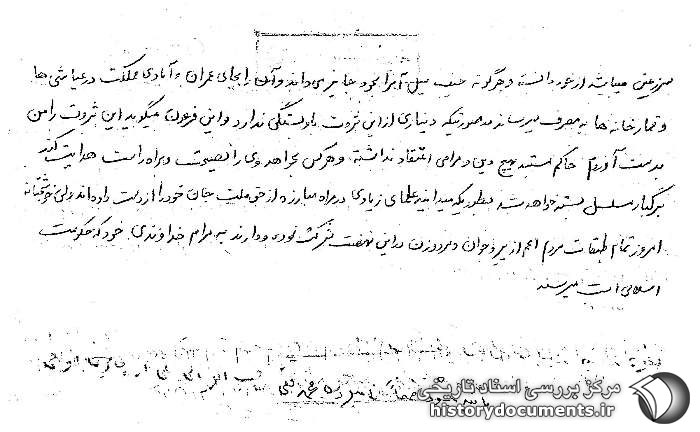 سرزمین میباشد از خود دانسته و هرگونه حیف میل آنرا بخود جایز می داند و آن را بجای عمران و آبادی مملکت در عیاشی ها
و قمارخانه ها به مصرف میرساند در صورتیکه دنیا بی از این ثروت وابستگی ندارد و این فرعون میگوید این ثروت را من
بدست آوردم حاکم مستبد بهیچ دین و مرامی اعتقاد نداشته و هرکس بخواهد وی را نصیحت و براه راست هدایت کند
برگبار مسلسل بسته خواهد شد بطوریکه میدانید علمای زیادی در راه مبارزه از حق ملت جان خود را از دست داده اند ولی خوشبختانه
امروز تمام طبقات مردم اعم از پیر و جوان و مرد و زن در این نهضت شرکت نموده و دارند به مرام خداوندی خود که حکومت
اسلامی است میرسند
مرکز بررسی اسناد تاریخی
historydocuments.ir